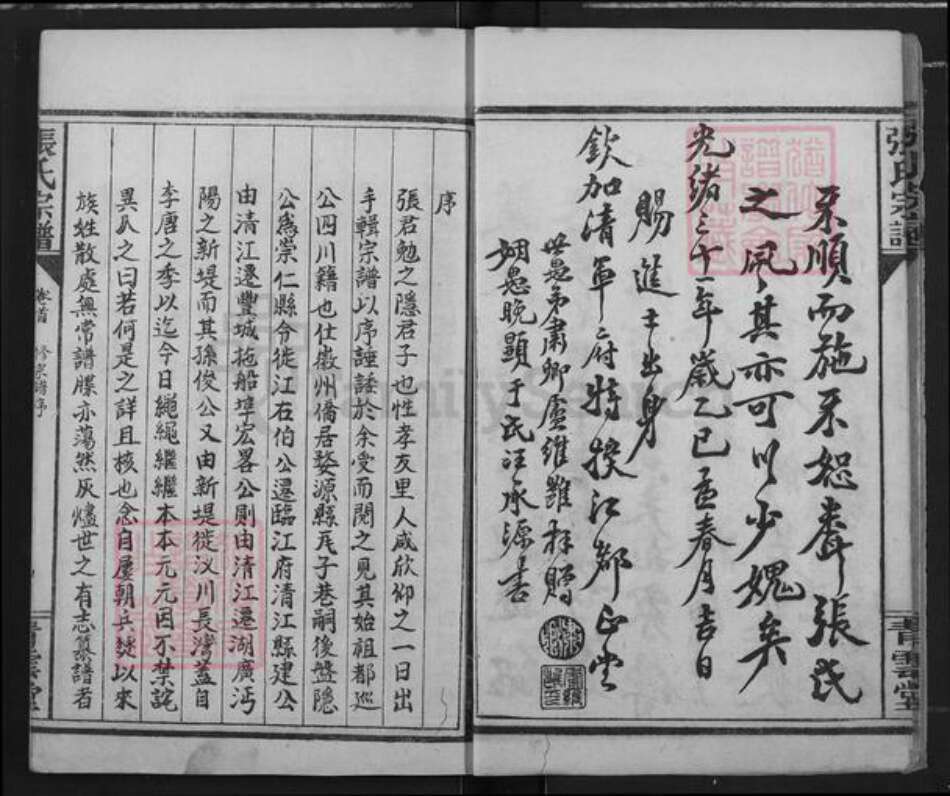 張氏宗譜
不順而施不恕聲張氏
之風其亦可以少媿矣
光緒三十一年歲乙巳孟春月吉日
賜進士出身
欽加清軍府特授江都正堂
世愚弟肅卿盧維雝拜贈
姻愚晚顯于氏汪承源書
青雲堂
序
張君勉之隱君子也性孝友里人咸欣仰之一日出
手輯宗譜以序諈諉於余受而閱之見其始祖都巡
公四川籍也仕徽州僑居婺源縣瓦子巷嗣後盤隱
公為崇仁縣令徙江右伯公還臨江府清江縣建公
由清江遷豐城拖船埠宏畧公則由清江遷湖廣沔
陽之新堤而其孫俊公又由新堤徙汊川長灣蓋自
李唐之季以迄今日繩繩繼繼本本元元因不禁詫
異久之曰若何是之詳且核也念自屢朝兵燹以來
族姓散處無常譜牒亦蕩然灰燼世之有志纂譜者
張氏宗譜
卷首
修宗譜序
青雲堂